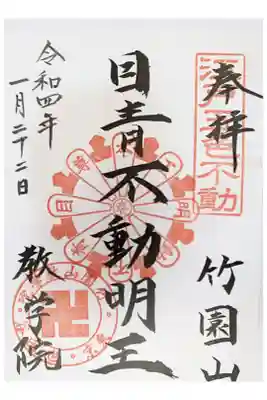 奉拝
江戸五色不動
竹園山
目青不動明王
令和四年
一月二十二日
教学院